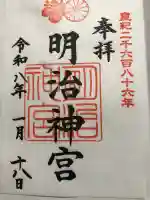 皇紀二千六百八十六年
奉拝
明治神宮
令和八年 一月 十八日
明治神宮